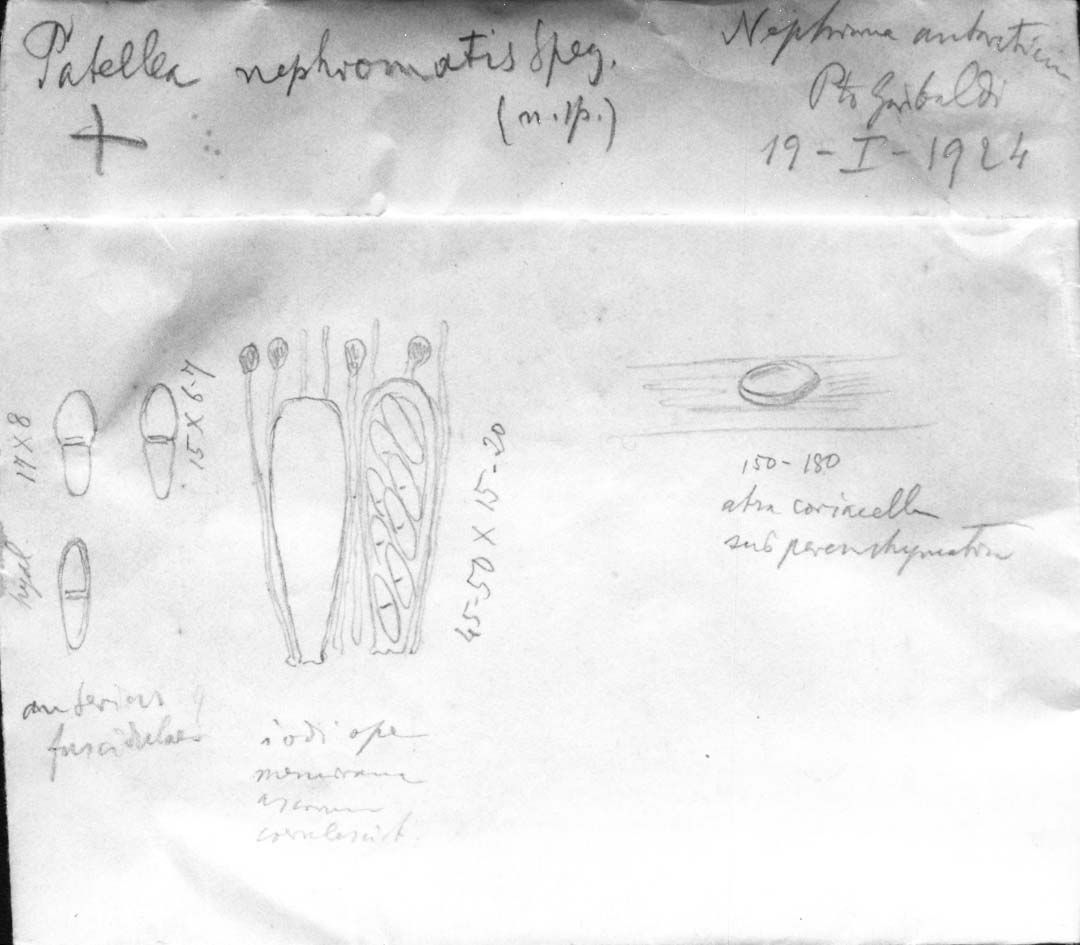 Patellea nephromatis Speg.
(n. sp.)
+
Nephroma antarcticum
Pto Garibaldi
19-I-1924
17 X 8
15 X 6-7
hyal
45-50 X 15-20
150-180
atra coriacella
subparenchymatica
fuscidulae
iodi ope
membrana
ascorum
coerulescit.